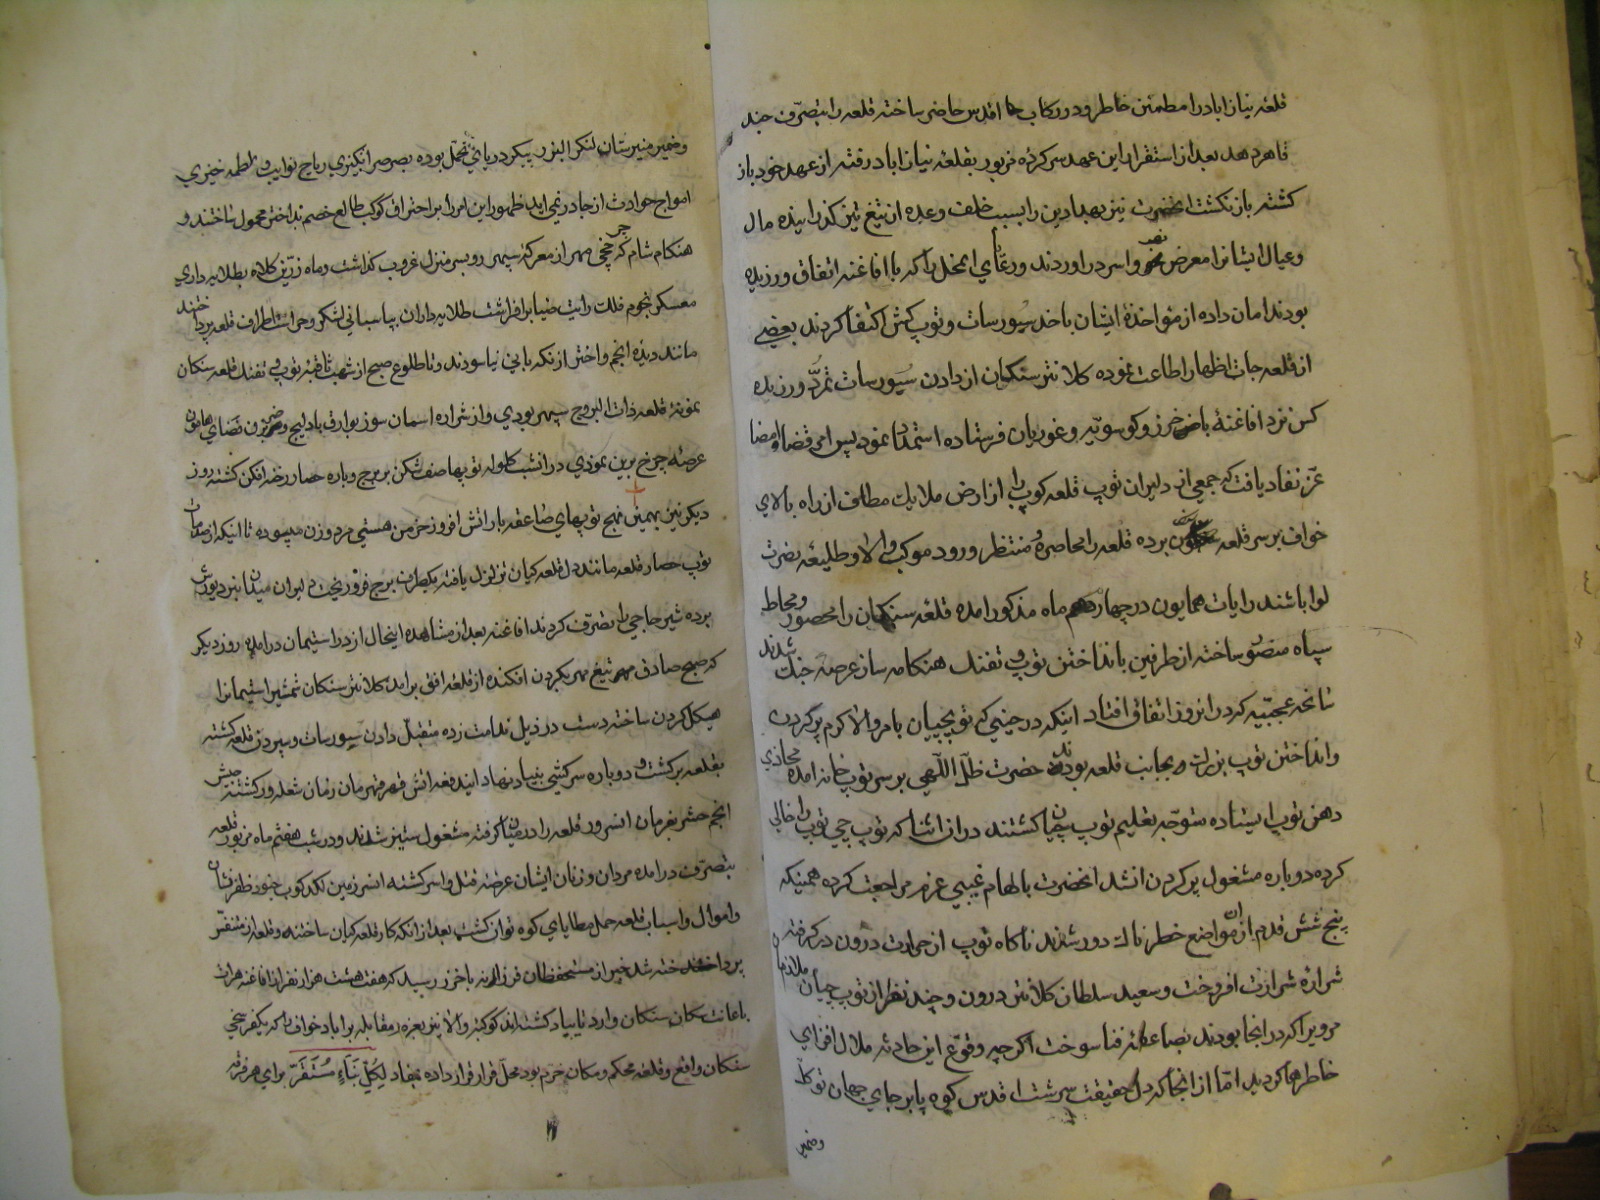 قلعه نیازاباد را مطمئن خاطر و در رکاب اقدس حاضر ساخته قلعه را بتصرف جند
قاهره دهد بعد از استقرار این عهد سرکرده مزبور بقلعه نیازاباد رفته از عهد خود باز
کشته باز نکشت انحضرت نیز بهادین را بسبب خلف وعده از تیغ تیز کذرانیده مال
و عیال ایشانرا معرض نهب و اسر در اوردند و رعایای انمحل را که با افاغنه اتفاق ورزیده
بودند امان داده از مؤاخذهٔ ایشان باخذ سیورسات و توپ کش اکتفا کردند بعضی
از قلعه جات اظهار اطاعت نموده کلانتر سنکان از دادن سیورسات تمرّد ورزیده
کس نزد افاغنهٔ باخرز و کوسویّه و غوریان فرستاده استمداد نمود پس امر قضا امضا
عزّ نفاد یافت که جمعی از دلیران توپ قلعه کوب را از ارض ملایک مطاف از راه بالای
خواف بر سر قلعه برده قلعه را محاصره و منتظر ورود موکب والا و طلیعهٔ نصرت
لوا باشند رایات همایون در چهاردهم ماه مذکور وارد امده قلعه سنکان را محصور و محاط
سپاه منصور ساخته از طرفین بانداختن توپ و تفنک هنکامه ساز عرصه جنک شدند
سانحهٔ عجیبه که در انروز اتفاق افتاد اینکه در حینی که توپچیان بامر والا کرم پر کردن
و انداختن توپ بزرک بجانب قلعه بودند حضرت ظلّ اللّهی بر سر توپ خانه امده محاذی
دهن توپ ایستاده متوجه تعلیم توپ چیان کشتند در ان اثنا که توپ چی توپ را خالی
کرده دوباره مشغول پر کردن ان شد انحضرت بالهام غیبی عزم مراجعت کرده همینکه
پنج شش قدم از ان مواضع خطرناک دور شدند ناکاه توپ از حرارت درون در کرفته
شراره شرارت افروخت و سعید سلطان کلانتر درون و چند نفر از توپ چیان و ملازمان
مرویرا که در انجا بودند بصاعقهٔ فنا سوخت اکرچه وقوع این حادثه ملال افزای
خاطرها کردید امّا از انجا که دل حقیقت سرشت اقدس کوه پابرجای جهان توکل
و ضمیر
و ضمیر منیرستان لنکر البرز پیکر دریای تحمّل بوده بصرصر انکیزی ریاح نوایب و تلاطم خیزی
امواج حوادث از جا در نمی اید ظهور این امر را بر احتراق کوکب طالع خصم بداختر محمول ساختند و
هنکام شام که چرخچی مهر از معرکهٔ سپهر رو بسر منزل غروب کذاشت و ماه زرّین کلاه بطلایه داری
معسکر نجوم فلک رایت ضیا برافراشت طلایه داران بپاسبانی لشکر و حراست اطراف قلعه پرداختند
مانند دیده انجم و اختر از نکهبانی نیاسودند و تا طلوع صبح از شهب ثاقبهٔ توپ و تفنک قلعه سنکان
نمونهٔ قلعه ذات البروج سپهر بودی و از شراره اسمان سوز بوارق بادلیج و ضربزن فضای هامون
عرصه چرخ برین نمودی در انشب کلوله توپهای صف شکن بر برج و باره حصار رخنه افکن کشته روز
دیکر نیز بهمین نهج توپهای صاعقه بار اتش افروز خرمن هستی مردوزن میبوده تا اینکه از صدمات
توپ حصار قلعه مانند دل قلعه کیان تزلزل یافته یکطرف برج فرو ریخت دلیران میدان نبرد یورش
برده شیر حاجی را تصرف کردند افاغنه بعد از مشاهده اینحال از در استیمان در امده روز دیکر
که صبح صادق تیغ مهر بکردن افکنده از قلعه افق بر امد کلانتر سنکان شمشیر استیمانرا
هیکل کردن ساخته دست در ذیل ندامت زده متقبّل دادن سیورسات و سپردن قلعه کشته
بقلعه برکشت و دوباره سرکشی بنیاد نهاد اینده فعه اتش قهر قهرمان زمان شعله ور کشته جیش
انجم حشر بفرمان انسرور قلعه را در میان کرفته مشغول ستیز شدند و در شب هفتم ماه مزبور قلعه
بتصرف در امده مردان و زنان ایشان عرضه قتل و اسر کشته انسرزمین لکدکوب جنود ظفر نشان
و اموال و اسباب قلعه حمل مطایای کوه توان کشت بعد از انکه کار قلعه کیان ساخته و قلعه از متنفس
پرداخته شد خبر از مستحفظان فرزاده باخرز رسید که هفت هشت هزار نفر از افاغنه هرات
باعانت سکان سنکان وارد تایباد کشته اند کوکبهٔ والا نیز بعزم مقابله براباد خواف را که بیکفرسخی
سنکان واقع و قلعه محکم و مکان خرّم بود محل قرار قرار داده بمفاد لِکُلِّ نَبَاءٍ مُسْتَقَرّ برای هر فرقه